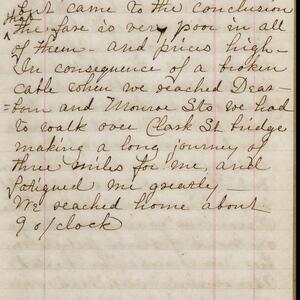 but came to the conclusion
that
the fare is very poor in all
of them - and prices high -
In consequence of a broken
cable when we reached Dear-
=born and Monroe Sts we had
to walk over Clark St bridge
making a long journey of
three miles for me, and
fatigued me greatly -
We reached home about
9 o/clock